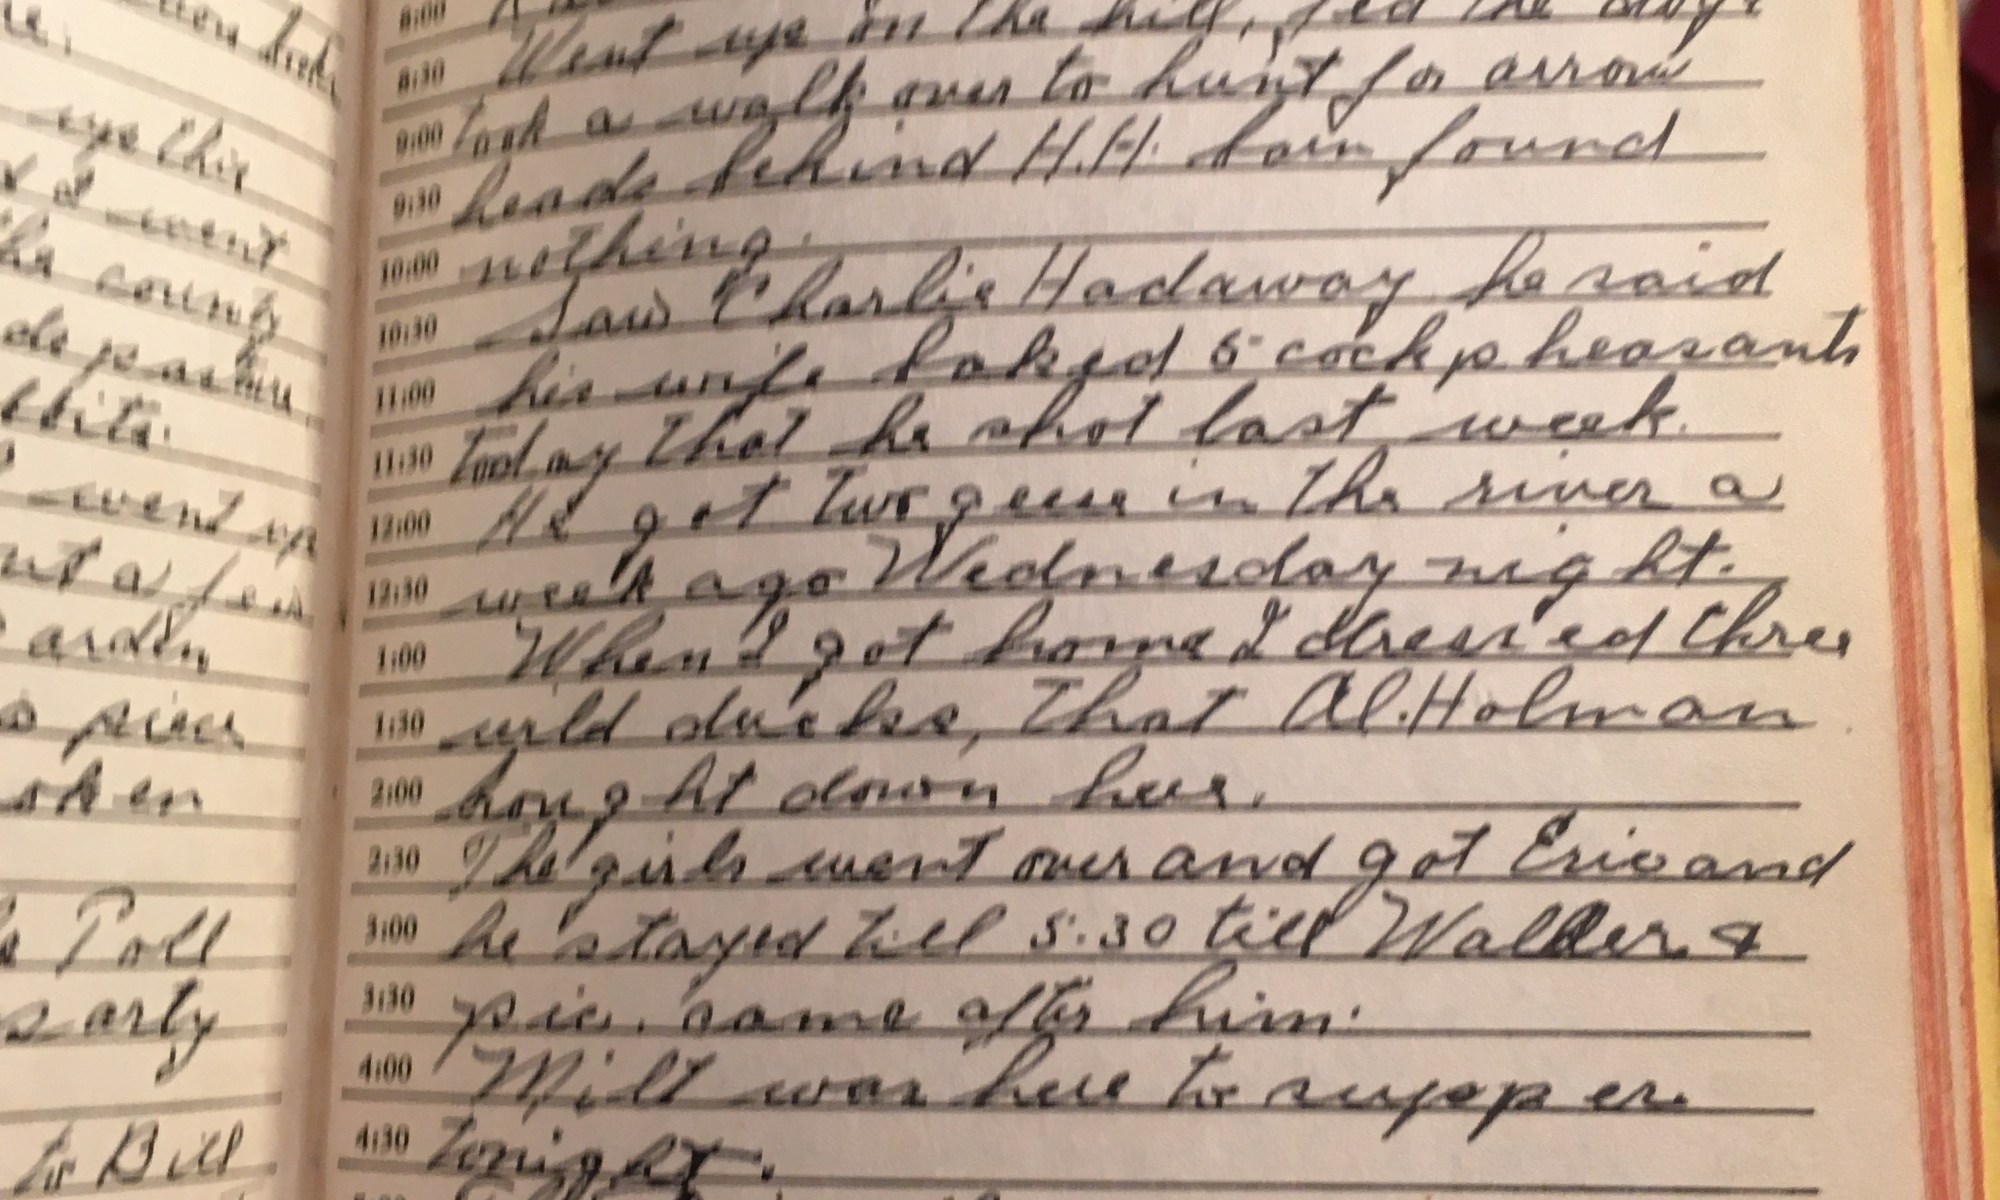 hill, fed the
8:00
Went up on the hill, fed the dogs
8:30
took a walk over to hunt for arrow
9:00
heads behind H.H. barn found
9:30
nothing.
10:00
Saw Charlie Hadaway he said
10:30
his wife baked 5 cock pheasants
11:00
today that he shot last week.
11:30
He got two geese in the river a
12:00
week ago Wednesday night.
12:30
When I got home I dressed three
1:00
wild ducks, that Al. Holman
1:30
bought down here.
2:00
The girls went over and got Eric and
2:30
he stayed till 5:30 till Walker &
3:00
pic. came after him.
3:30
Milt was here to supper
4:00
tonight.
4:30
up this
I went
the county
pasture
went up
a few
arden
piece
oken
Poll
arty
to Bill